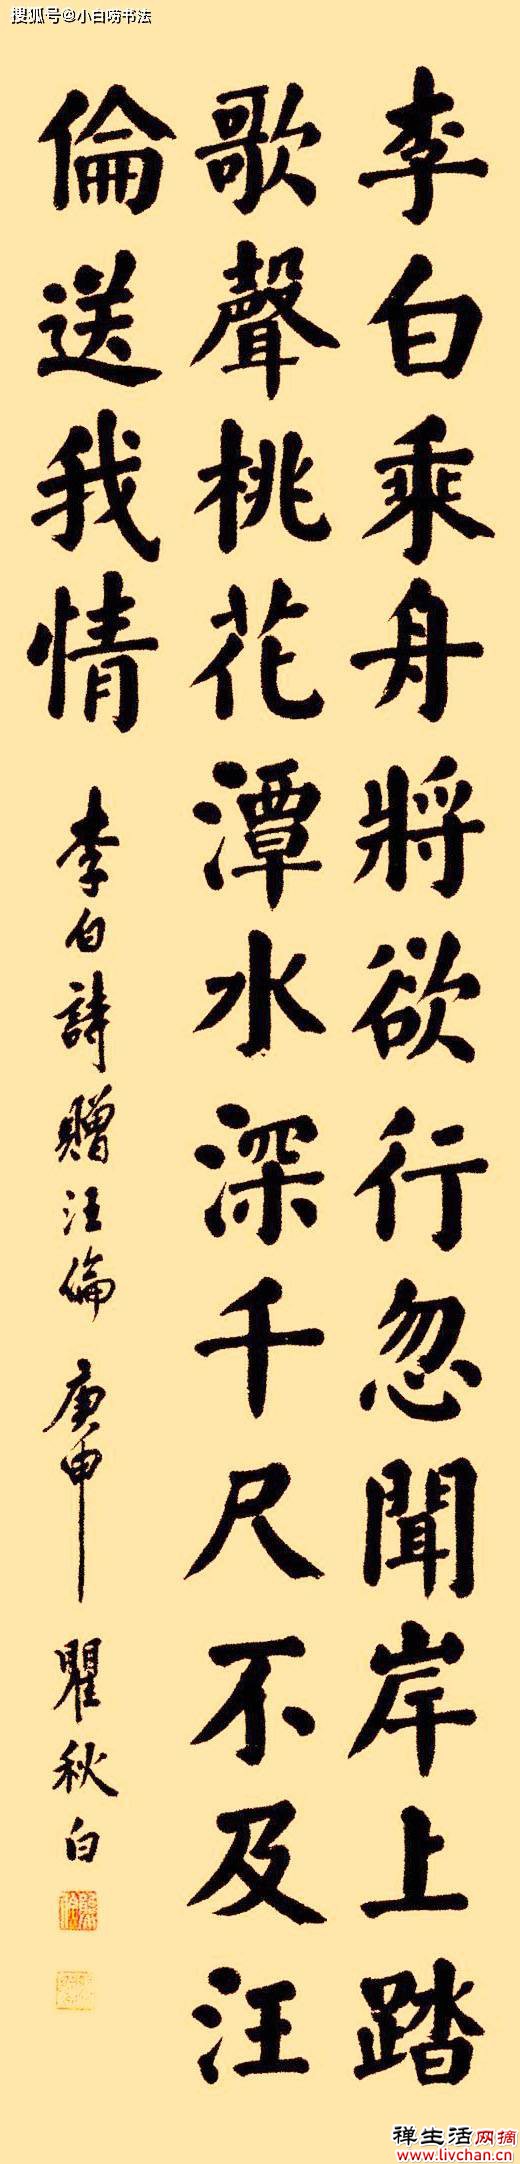 搜狐号@小白唠书法
李白乘舟將欲行忽聞岸上踏
歌聲桃花潭水深千尺不及汪
倫送我情
李白詩贈汪倫 庚申 瞿秋白
禅生活网摘
www.livchan.cn